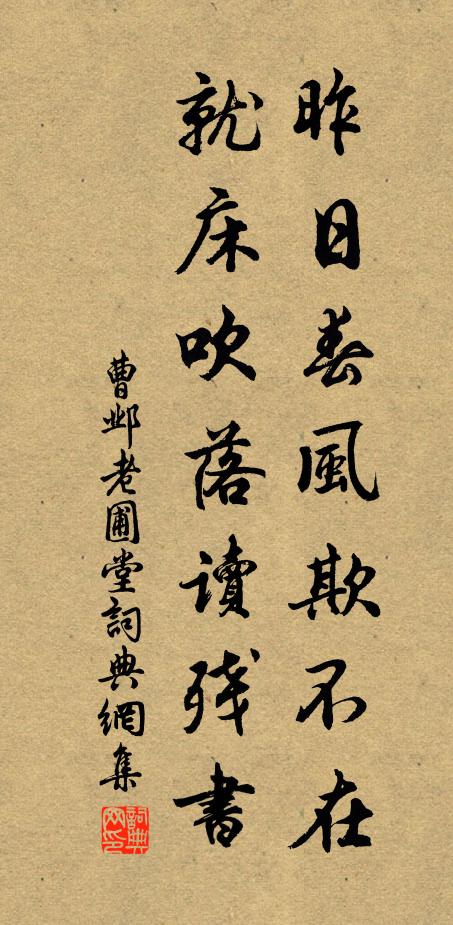 昨日春風欺不在
就床吹落讀殘書
曹邺老圃堂詞典網集
詞典网印